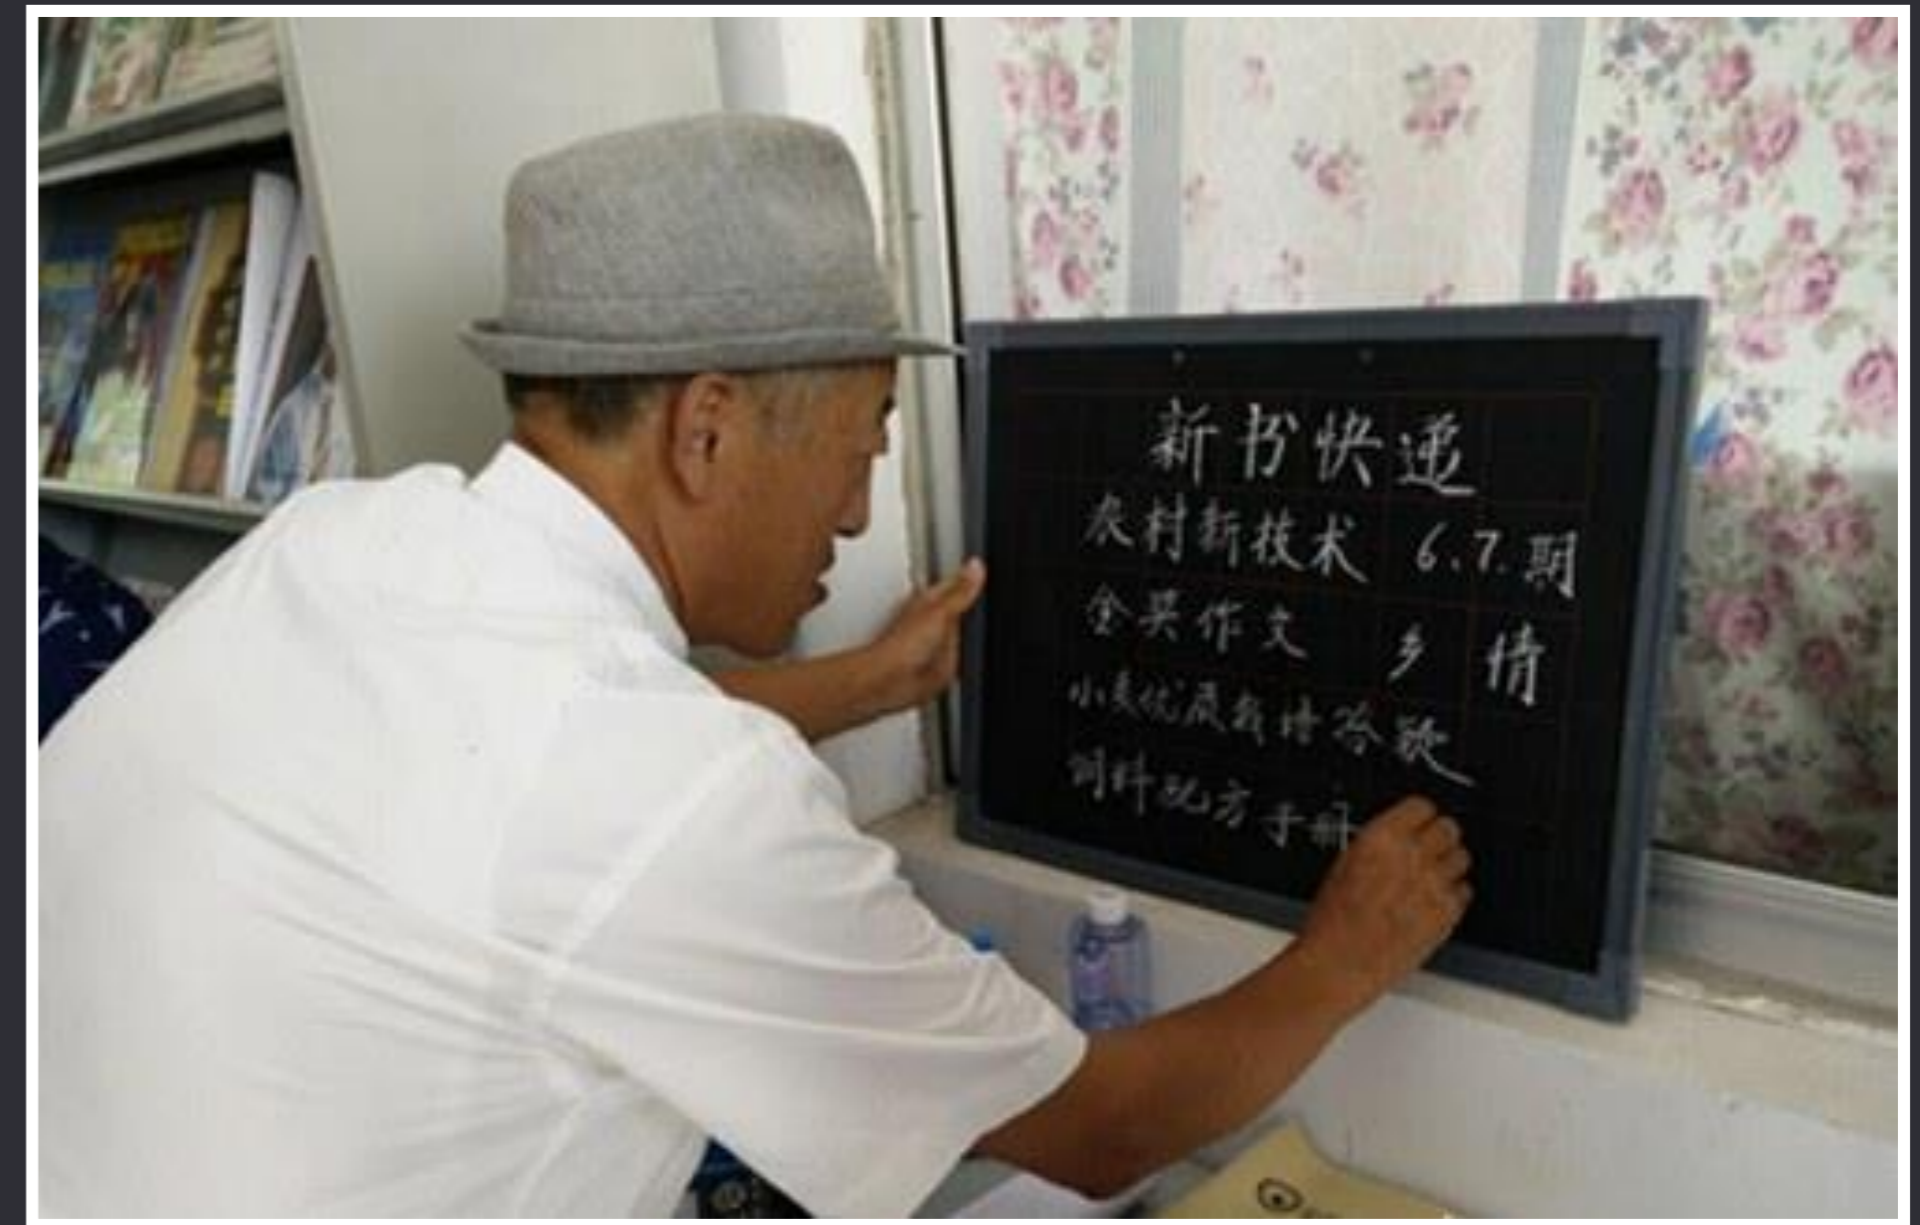 新书快递
农村新技术 6.7.期
全英作文 乡 情
小麦优质栽培答疑
饲料配方手册